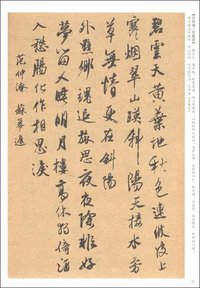 碧雲天黄葉地秋色連波波上
寒烟翠山映斜陽天接水芳
草無情更在斜陽
外黯鄉魂追旅思夜夜除非好
夢留人睡明月樓高休獨倚酒
入愁腸化作相思淚
范仲淹 蘇幕遮